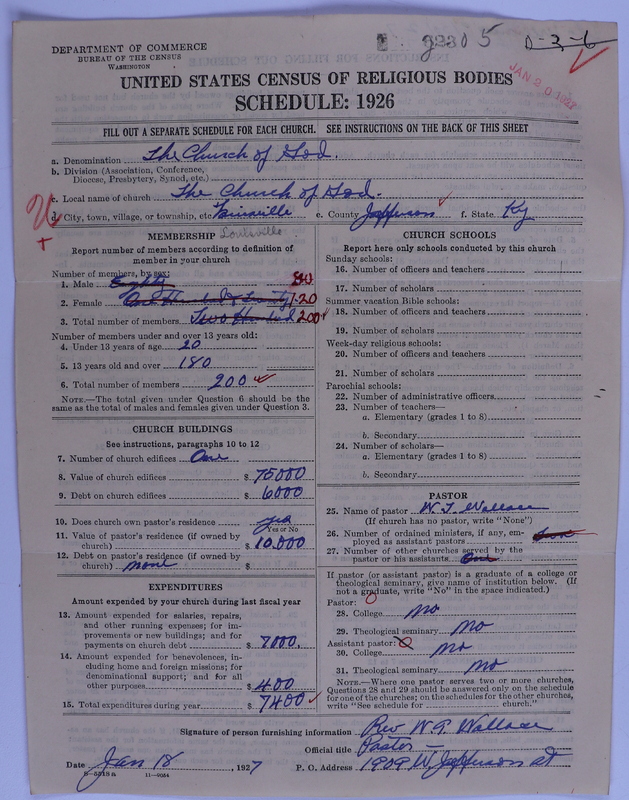 DEPARTMENT OF COMMERCE
BUREAU OF THE CENSUS
WASHINGTON
0-3-6
JAN 20 1927
UNITED STATES CENSUS OF RELIGIOUS BODIES
SCHEDULE: 1926
FILL OUT A SEPARATE SCHEDULE FOR EACH CHURCH. SEE INSTRUCTIONS ON THE BACK OF THIS SHEET
a. Denomination The Church of God.
b. Division (Association, Conference,
Diocese, Presbytery, Synod, etc.)
c. Local name of church The Church of God.
d. City, town, village, or township, etc. e. County Jefferson f. State Ky
Louisville
MEMBERSHIP
Report number of members according to definition of
member in your church
Number of members, by sex:
1. Male Eighty 80
2. Female One Hundred & Twenty 120
3. Total number of members Two Hundred 200
Number of members under and over 13 years old:
4. Under 13 years of age 20
5. 13 years old and over 180
6. Total number of members 200
NOTE.—The total given under Question 6 should be
same as the total of males and females given under Question 3.
CHURCH BUILDINGS
See instructions, paragraphs 10 to 12
7. Number of church edifices One
8. Value of church edifices $ 75000
9. Debt on church edifices $ 6000
10. Does church own pastor's residence yes
Yes or No
11. Value of pastor's residence (if owned by
church) $ 10.000
12. Debt on pastor's residence (if owned by
church) none $
EXPENDITURES
Amount expended by your church during last fiscal year
13. Amount expended for salaries, repairs,
and other running expenses; for im-
provements or new buildings; and for
payments on church debt $ 7000.
14. Amount expended for benevolences, in-
cluding home and foreign missions; for
denominational support; and for all
other purposes $ 400
15. Total expenditures during year $ 7400
CHURCH SCHOOLS
Report here only schools conducted by this church
Sunday schools:
16. Number of officers and teachers
17. Number of scholars
Summer vacation Bible schools:
18. Number of officers and teachers
19. Number of scholars
Week-day religious schools:
20. Number of officers and teachers
21. Number of scholars
Parochial schools:
22. Number of administrative officers
23. Number of teachers—
a. Elementary (grades 1 to 8)
b. Secondary
24. Number of scholars—
a. Elementary (grades 1 to 8)
b. Secondary
PASTOR
25. Name of pastor W. T. Wallace
(If church has no pastor, write "None")
26. Number of ordained ministers, if any, em-
ployed as assistant pastors
27. Number of other churches served by the
pastor or his assistants
If pastor (or assistant pastor) is a graduate of a college or
theological seminary, give name of institution below. (If
not a graduate, write "No" in the space indicated.)
Pastor: 0
28. College No
29. Theological seminary No
Assistant pastor:
30. College No
31. Theological seminary No
NOTE.—Where one pastor serves two or more churches,
Questions 28 and 29 should be answered only on the schedule
for one of the churches; on the schedules for the other churches,
write "See schedule for church."
Signature of person furnishing information Rev W. T. Wallace
Official title Pastor
Date Jan 18, 1927 P. O. Address 1909 W. Jefferson st
8—5518a 11—9034